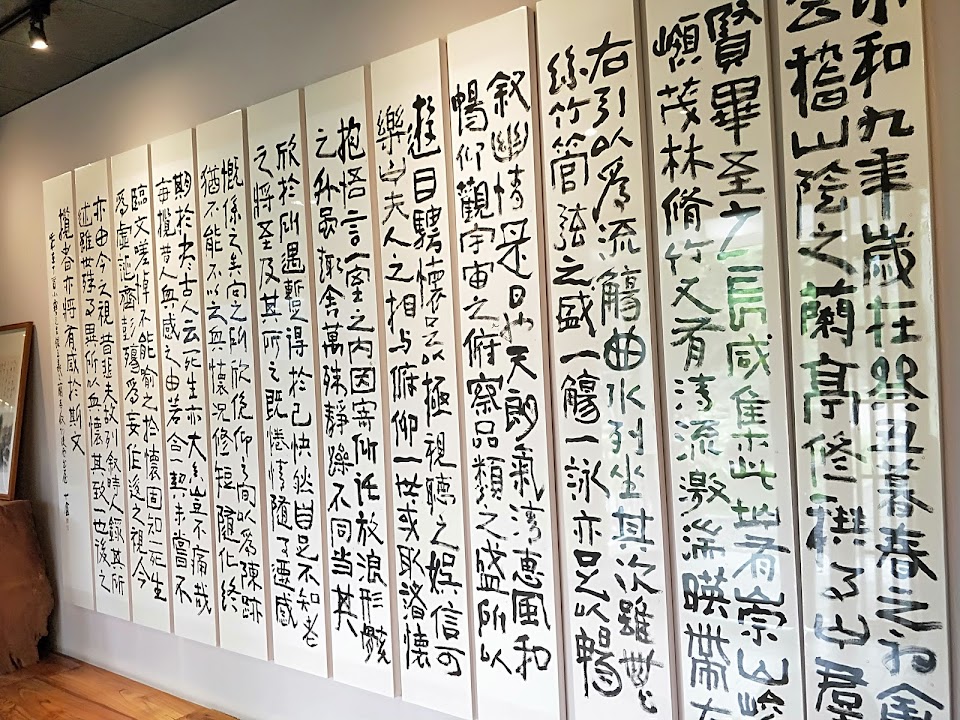 永和九年歲在癸丑暮春之初會
會稽山陰之蘭亭修禊事也羣
賢畢至少長咸集此地有崇山峻
嶺茂林脩竹又有清流激湍暎帶左
右引以為流觴曲水列坐其次雖無
絲竹管弦之盛一觴一詠亦足以暢
敘幽情是日也天朗氣清惠風和
暢仰觀宇宙之俯察品類之盛所以
遊目騁懷足以極視聽之娛信可
樂也夫人之相與俯仰一世或取諸懷
抱悟言一室之內因寄所託放浪形骸
之外雖趣舍萬殊靜躁不同當其
欣於所遇暫得於己快然自足不知老
之將至及其所之既惓情隨事遷感
慨係之矣向之所欣俛仰之間以為陳跡
猶不能不以之興懷況修短隨化終
期於盡古人云死生亦大矣豈不痛哉
每攬昔人興感之由若合契未嘗不
臨文嗟悼不能喻之於懷固知一死生
為虛誕齊彭殤為妄作後之視今
亦由今之視昔悲夫故列敘時人錄其所
述雖世殊事異所以興懷其致一也後之
攬者亦將有感於斯文